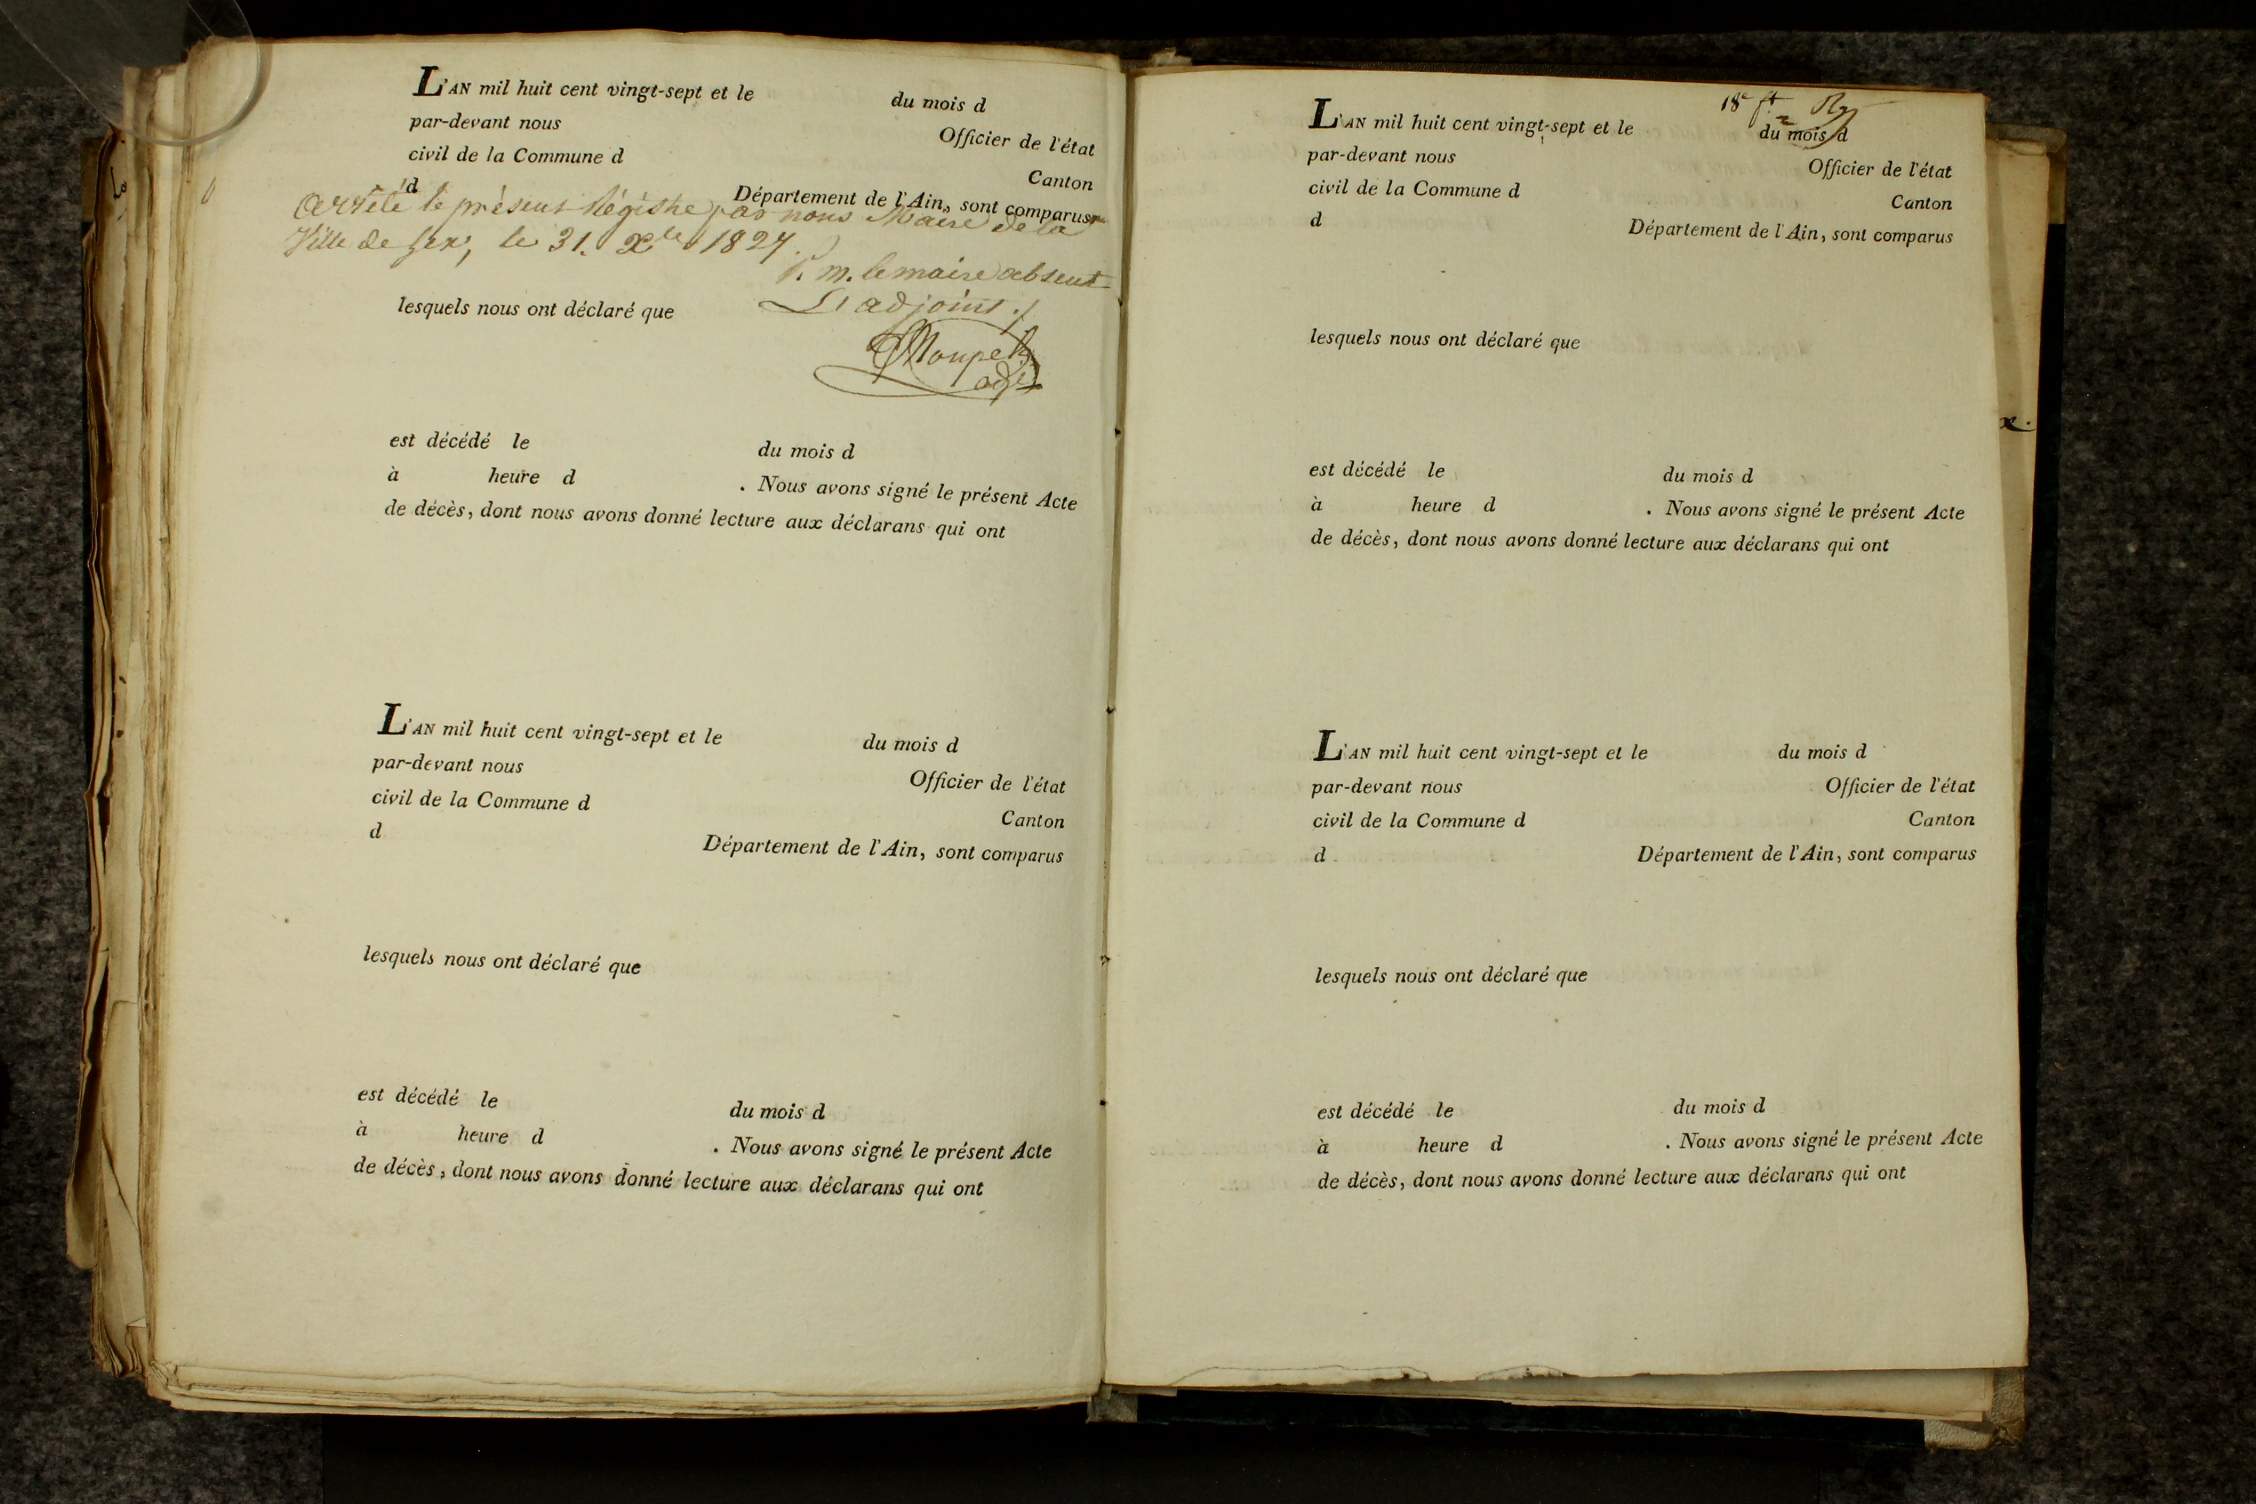 L'AN mil huit cent vingt-sept et le du mois d
par-devant nous Officier de l'état
civil de la Commune d Canton
d Département de l'Ain, sont comparus
arrêté le présent Régistre par nous Maire de la
Ville de Gex, le 31. Xbre 1827.
P. m. le maire absent
L'adjoint
lesquels nous ont déclaré que
adjt
est décédé le du mois d
à heure d . Nous avons signé le présent Acte
de décès, dont nous avons donné lecture aux déclarans qui ont
L'AN mil huit cent vingt-sept et le du mois d
par-devant nous Officier de l'état
civil de la Commune d Canton
d Département de l'Ain, sont comparus
lesquels nous ont déclaré que
est décédé le du mois d
à heure d . Nous avons signé le présent Acte
de décès, dont nous avons donné lecture aux déclarans qui ont
18e ft
L'AN mil huit cent vingt-sept et le du mois d
par-devant nous Officier de l'état
civil de la Commune d Canton
d Département de l'Ain, sont comparus
lesquels nous ont déclaré que
est décédé le du mois d
à heure d . Nous avons signé le présent Acte
de décès, dont nous avons donné lecture aux déclarans qui ont
L'AN mil huit cent vingt-sept et le du mois d
par-devant nous Officier de l'état
civil de la Commune d Canton
d Département de l'Ain, sont comparus
lesquels nous ont déclaré que
est décédé le du mois d
à heure d . Nous avons signé le présent Acte
de décès, dont nous avons donné lecture aux déclarans qui ont